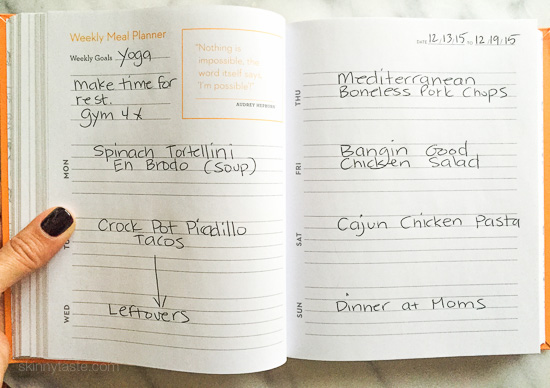 Weekly Meal Planner
Weekly Goals Yoga
make time for
rest.
gym 4x
"Nothing is
impossible, the
word itself says,
'I'm possible!'"
AUDREY HEPBURN
MON
Spinach Tortellini
En Brodo (Soup)
TUE
Crock Pot Picadillo
Tacos
WED
Leftovers
DATE 12/13/15 TO 12/19/15
THU
Mediterranean
Boneless Pork Chops
FRI
Bangin Good
Chicken Salad
SAT
Cajun Chicken Pasta
SUN
Dinner at Moms
skinnytaste.com